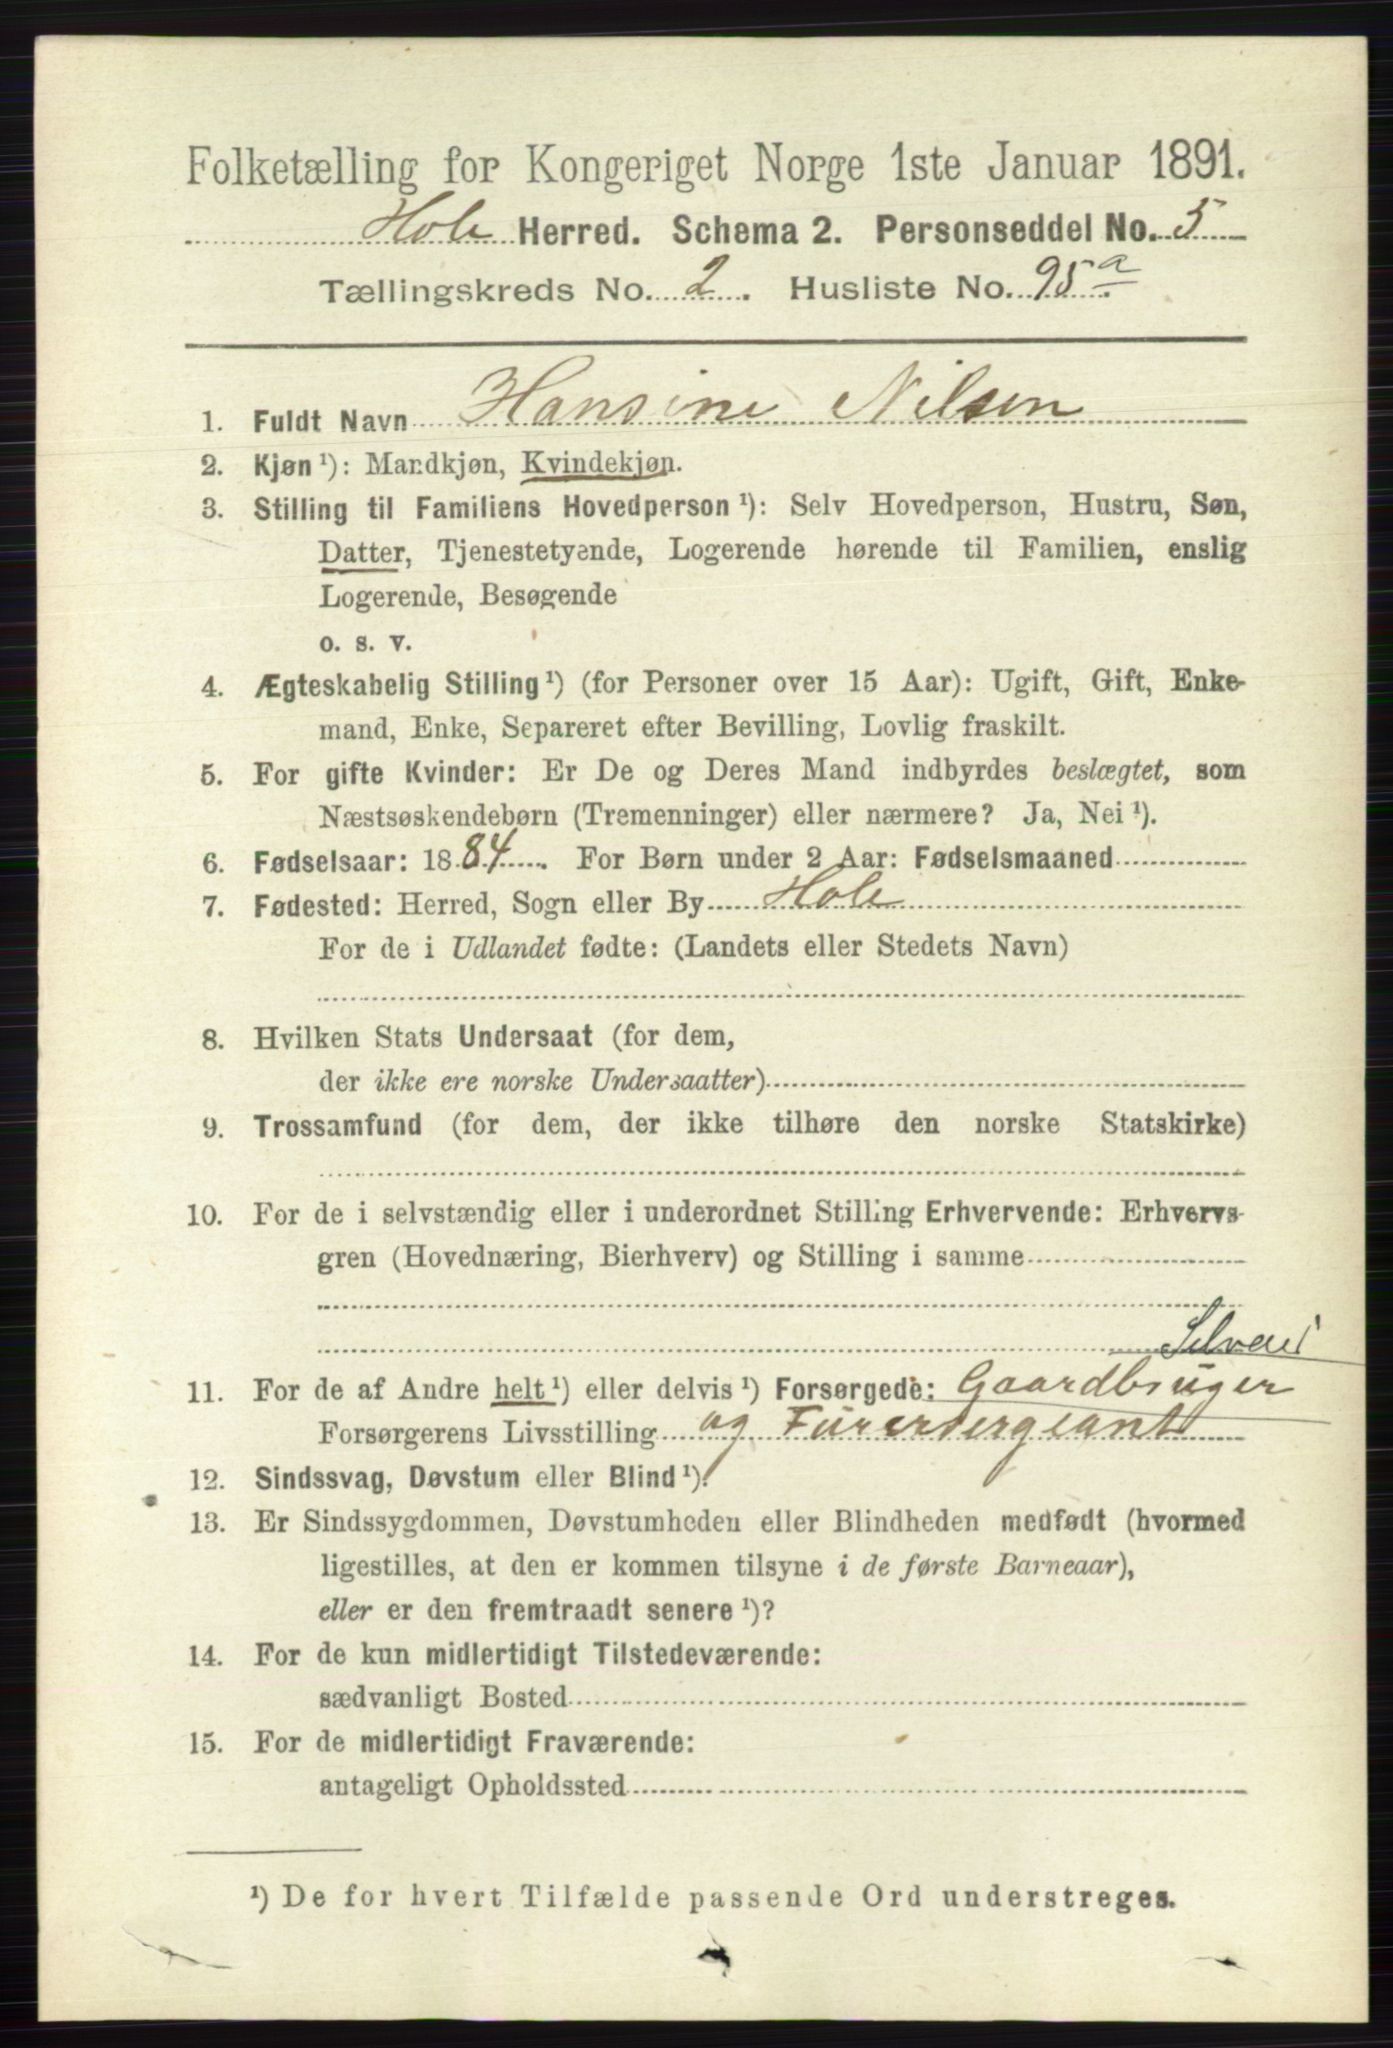 Folketælling for Kongeriget Norge 1ste Januar 1891.
Hole Herred. Schema 2. Personseddel No. 5
Tællingskreds No. 2. Husliste No. 95a
1. Fuldt Navn Hansine Nilsen
2. Kjøn ¹): Mandkjøn, Kvindekjøn.
3. Stilling til Familiens Hovedperson ¹): Selv Hovedperson, Hustru, Søn,
Datter, Tjenestetyende, Logerende hørende til Familien, enslig
Logerende, Besøgende
o. s. v.
4. Ægteskabelig Stilling ¹) (for Personer over 15 Aar): Ugift, Gift, Enke-
mand, Enke, Separeret efter Bevilling, Lovlig fraskilt.
5. For gifte Kvinder: Er De og Deres Mand indbyrdes beslægtet, som
Næstsøskendebørn (Tremenninger) eller nærmere? Ja, Nei ¹).
6. Fødselsaar: 1884. For Børn under 2 Aar: Fødselsmaaned
7. Fødested: Herred, Sogn eller By Hole
For de i Udlandet fødte: (Landets eller Stedets Navn)
8. Hvilken Stats Undersaat (for dem,
der ikke ere norske Undersaatter)
9. Trossamfund (for dem, der ikke tilhøre den norske Statskirke)
10. For de i selvstændig eller i underordnet Stilling Erhvervende: Erhvervs-
gren (Hovednæring, Bierhverv) og Stilling i samme
Selveiei
11. For de af Andre helt ¹) eller delvis ¹) Forsørgede: Gaardbruger
Forsørgerens Livsstilling og Fürersergeant
12. Sindssvag, Døvstum eller Blind ¹).
13. Er Sindssygdommen, Døvstumheden eller Blindheden medfødt (hvormed
ligestilles, at den er kommen tilsyne i de første Barneaar),
eller er den fremtraadt senere ¹)?
14. For de kun midlertidigt Tilstedeværende:
sædvanligt Bosted
15. For de midlertidigt Fraværende:
antageligt Opholdssted
¹) De for hvert Tilfælde passende Ord understreges.